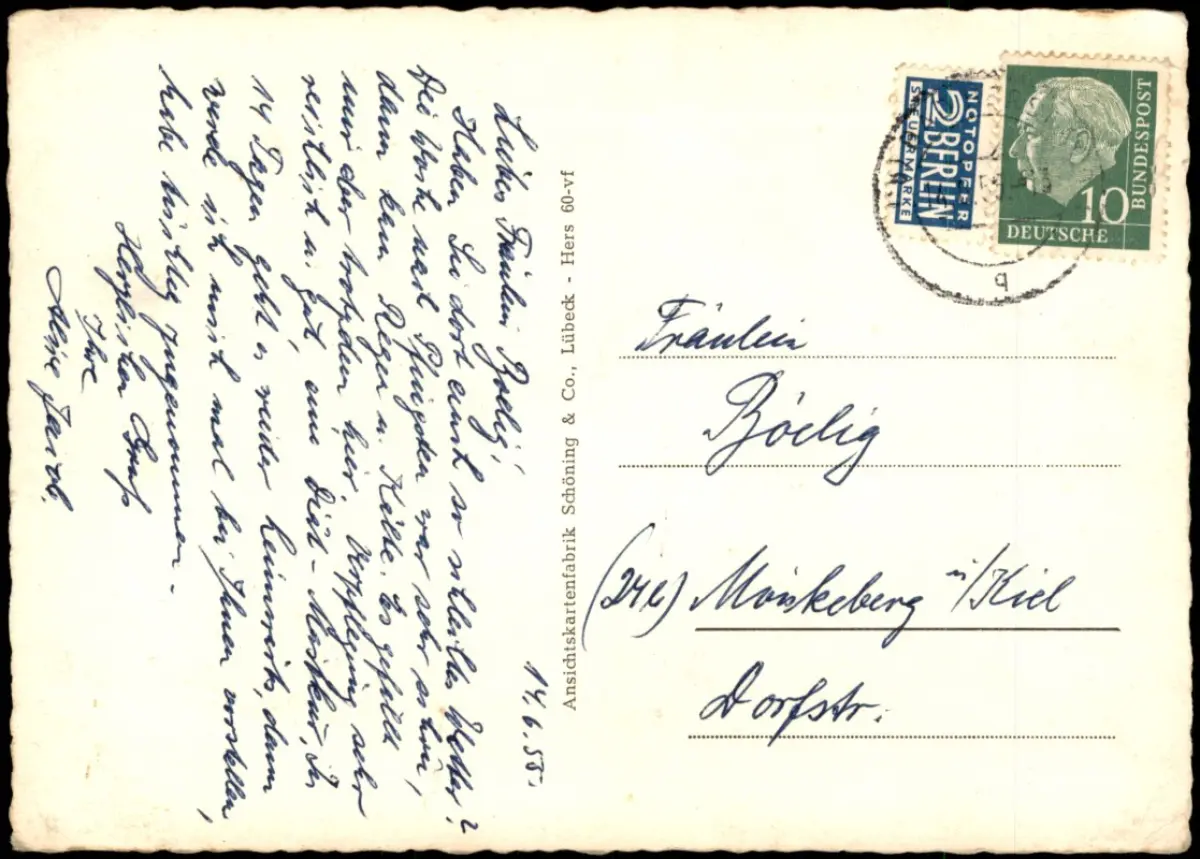 14.6.55.
Liebes Fräulein Boelig!
Haben Sie dort auch so schlechtes Wetter?
Die Woche nach Pfingsten war sehr schön,
dann kam Regen u. Kälte. Es gefällt
mir aber trotzdem hier. Verpflegung sehr
reichlich u. gut, eine Diät-
14 Tagen geht es wieder heimwärts, dann
werde ich mich mal bei Ihnen vorstellen,
habe tüchtig zugenommen.
Herzlichen Gruß
Ihre
Ansichtskartenfabrik Schöning & Co., Lübeck - Hers 60-vf
NOTOPFER
2 BERLIN
STEUERMARKE
DEUTSCHE
BUNDESPOST
10
Fräulein
Böelig
(24b) Mönkeberg ü/Kiel
Dorfstr.